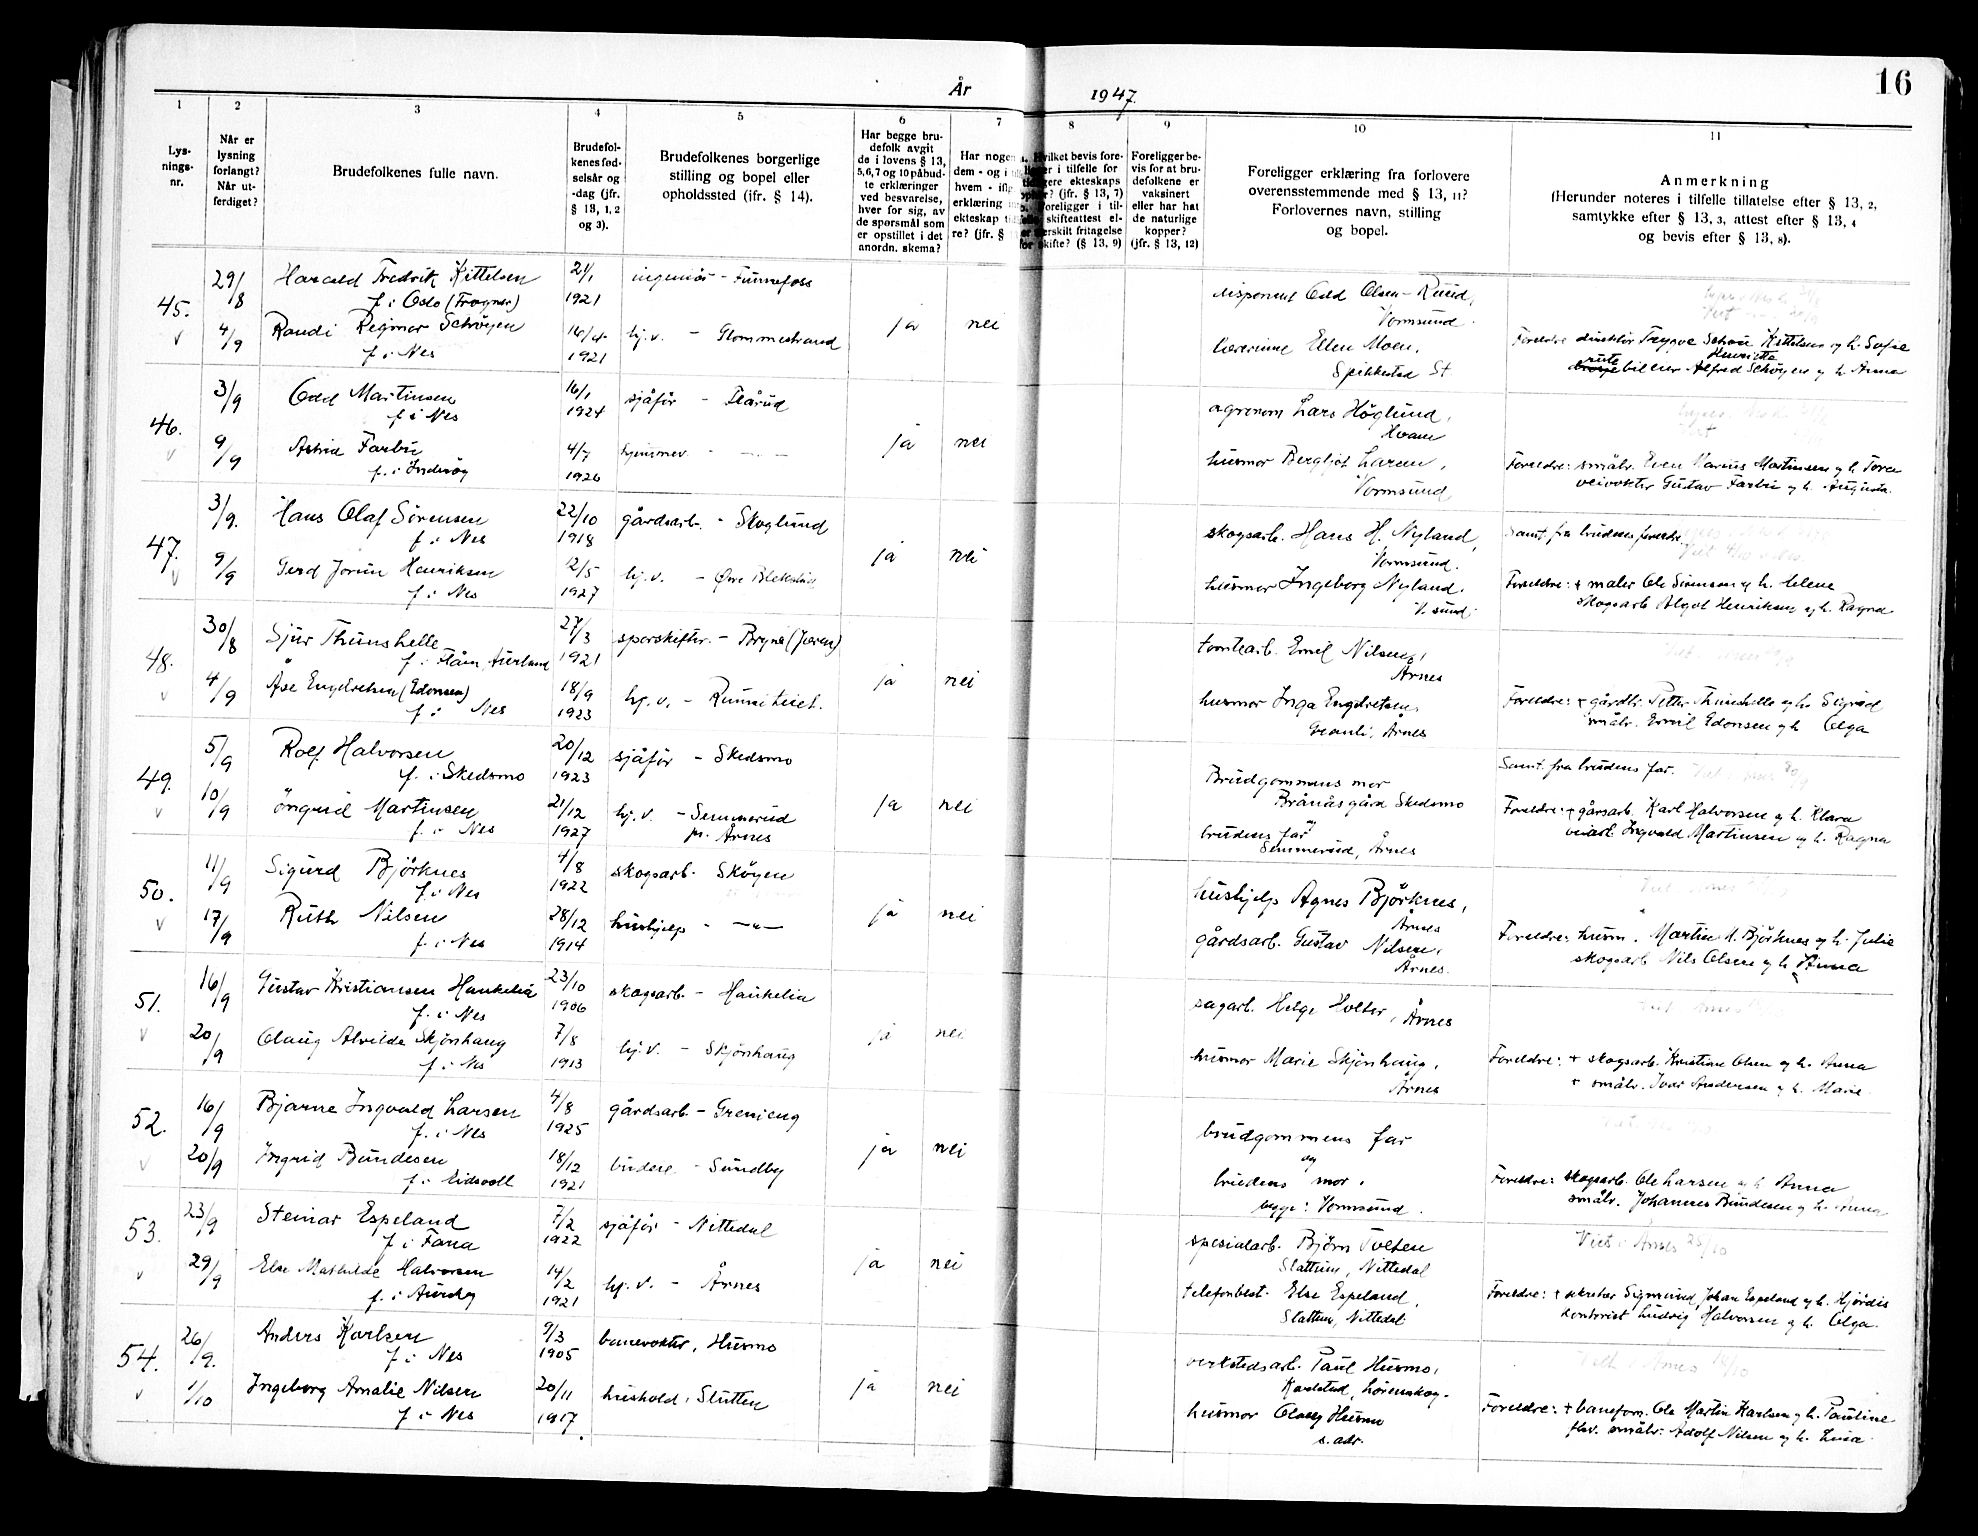 16
År 1947.
1 2 3 4 5 6 7 8 9 10 11
Lys-
nings-
nr.
Når er
lysning
forlangt?
Når ut-
ferdiget?
Brudefolkenes fulle navn.
Brudefol-
kenes fød-
selsår og
-dag (jfr.
§ 13, 1, 2
og 3).
Brudefolkenes borgerlige
stilling og bopel eller
opholdssted (ifr. § 14).
Har begge bru-
defolk avgit
de i lovens § 13,
5,6,7 og 10 påbud-
te erklæringer
ved besvarelse,
hver for sig, av
de spørsmål som
er opstillet i det
anordn. skema?
Har nogen
dem - og i
hvem - ifl
erklæring
ekteskap
re? (jfr. §
Hvilket bevis fore-
i tilfelle for
ekteskaps
(jfr. § 13, 7)
Foreligger i til-
skifteattest el-
fritagelse
skifte? (§ 13, 9)
Foreligger be-
vis for at bru-
defolkene er
vaksinert
eller har hat
de naturlige
kopper?
(jfr. § 13, 12)
Foreligger erklæring fra forlovere
overensstemmende med § 13, 11?
Forlovernes navn, stilling
og bopel.
Anmerkning
(Herunder noteres i tilfelle tillatelse efter § 13, 2,
samtykke efter § 13, 3, attest efter § 13, 4
og bevis efter § 13, 8).
45.
29/8 Harald Fredrik Kittelsen 21/1 ingeniør - Funnefoss
f. i Oslo (Frogner) 1921
4/9 Randi Regmor Schøyen 16/4 hj.v. - Glommestrand ja nei
f. i Nes 1921
disponent Odd Olsen-Ruud,
Vormsund.
lærerinne Ellen Moen,
Spikkestad St
Foreldre direktør Trygve Schou Kittelsen og h. Sofie
Henriette
rutebileier Alfred Schøyen og h. Anna
46.
3/9 Odd Martinsen 16/1 sjåfør - Skårud
f. i Nes 1924
9/9 Astrid Farbu 4/7 - " - ja nei
f. i Inderøy 1926
agronom Lars Höglund,
Hvam
husmor Bergljot Larsen,
Vormsund
Foreldre: småbr. Even Marius Martinsen og h. Tora
veivokter Gustav Farbu og h. Augusta.
47.
3/9. Hans Olaf Sørensen 22/10 gårdsarb. - Skoglund
f. i Nes 1918
9/9 Gerd Jorun Henriksen 12/5 hj.v. - Øvre ja nei
f. i Nes 1927
skogsarb. Hans H. Nyland,
Vormsund.
husmor Ingeborg Nyland.
V. sund.
Samt. fra brudens foreldre
Foreldre: + maler Ole Sørensen og h. Helene
skogsarb. Algot Henriksen og h. Ragna
48.
30/8 Sjur Thunshelle 27/3 sporskifter. - Bryne (Jæren)
f. i Flåm, Aurland 1921
4/9 Åse Engebretsen (Edonsen) 18/9 hj.v. - ja nei
f. i Nes 1923
tomtearb. Emil Nilsen,
Årnes
husmor Inga Engebretsen,
Granli, Årnes
Foreldre: + gårdbr. Petter Thunshelle og h. Sigrid
småbr. Emil Edonsen og h. Olga
49.
5/9 Rolf Halvorsen 20/12 sjåfør - Skedsmo
f. i Skedsmo 1923
10/9 Ingrid Martinsen 21/12 hj.v. - Semmerud ja nei
f. i Nes 1927 pr. Årnes
Brudgommens mor
Brånås gård Skedsmo
og
brudens far
Semmerud, Årnes
Samt. fra brudens far.
Foreldre: + gårdsarb. Karl Halvorsen og h. Klara
veiarb. Ingvald Martinsen og h. Ragna
50.
11/9 Sigurd Bjørknes 4/8 skogsarb. Skøyen
f. i Nes 1922
17/9 Ruth Nilsen 28/12 hushjelp - — " — ja nei
f. i Nes 1914
hushjelp Agnes Bjørknes,
Årnes
gårdsarb. Gustav Nilsen,
Årnes.
Foreldre: husm. Martin M. Bjørknes og h. Julie
skogsarb Nils Olsen og h. Anna
51.
16/9 Gustav Kristiansen Haukelia 23/10 skogsarb. - Haukelia
f. i Nes 1906
20/9 Olaug Alvilde Skjønhaug 7/8 hj.v. - Skjønhaug ja nei
f. i Nes 1913
sagarb. Helge Holter, Årnes
husmor Marie Skjønhaug,
Årnes
Foreldre: + skogsarb. Kristian Olsen og h. Anna
+ småbr. Ivar Andersen og h. Marie
52.
16/9 Bjarne Ingvald Larsen 4/8 gårdsarb - Grenieng
f. i Nes 1925
20/9 Ingrid Bundesen 18/12 budeie - Sundby ja nei
f. i Eidsvoll 1921
brudgommens far
og
brudens mor.
begge: Vormsund.
Foreldre: skogsarb. Ole Larsen og h Anna
småbr. Johannes Bundesen og h. Anna
53.
23/9 Steinar Espeland 7/2 sjåfør - Nittedal
f i Fana 1922
29/9 Else Mathilde Halvorsen 14/2 hj.v. - Årnes ja nei
f. i Aurskog 1921
spesialarb. Bjørn Tveten
Slattum, Nittedal
telefonbest. Else Espeland,
Slattum, Nittedal
Viet i Årnes 25/10
Foreldre: + sekretær Sigmund Johan Espeland og h. Hjørdis
kontorist Ludvig Halvorsen og h. Olga.
54.
26/9. Anders Karlsen 9/3 banevokter, Husmo
f. i Nes 1905
1/10 Ingeborg Amalie Nilsen 20/11 hushold. Slutten ja nei
f. i Nes 1917.
verkstedsarb. Paul Husmo,
Karlstad, Lørenskog.
husmor Olaug Husmo
s. adr.
Foreldre: + baneform. Ole Martin Karlsen og h. Pauline
fhv. småbr. Adolf Nilsen og h. Lina